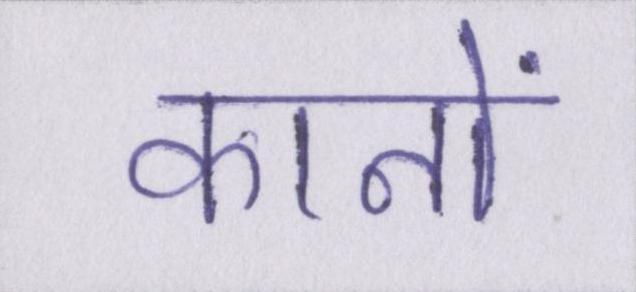 कानों